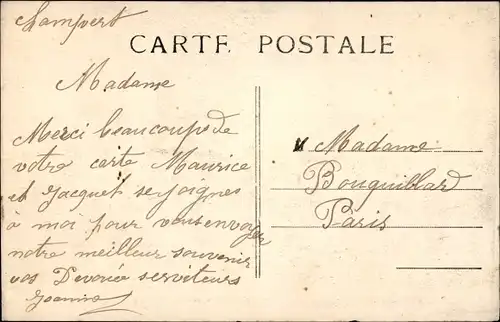 Lampert
CARTE POSTALE
Madame
Merci beaucoups de
votre carte Maurice
et Jacquet se joignes
à moi pour vous envoyer
notre meilleur souvenir
vos Devouée serviteurs
Madame
Bouquillard
Paris